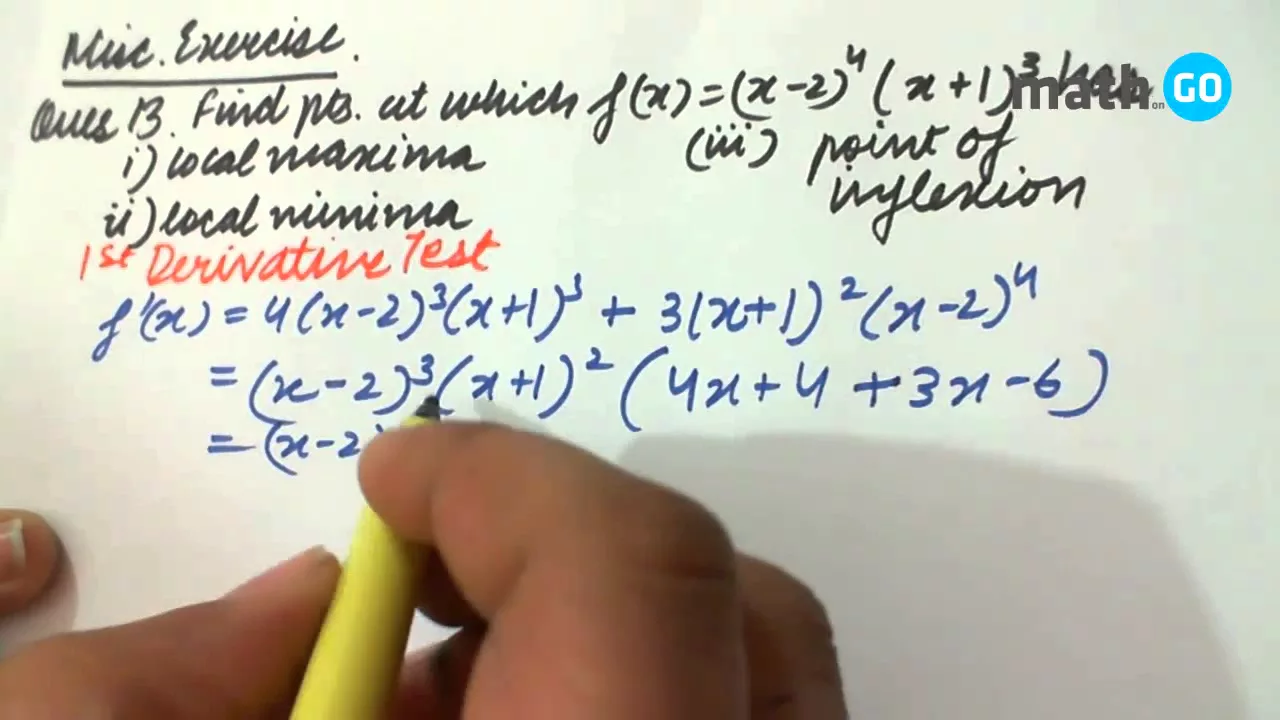 Misc. Exercise.
Ques 13. Find pts. at which f(x) = (x-2)^4 (x+1)^3
math on GO
i) local maxima
(iii) point of inflexion
ii) local minima
1st Derivative Test
f'(x) = 4(x-2)^3(x+1)^3 + 3(x+1)^2(x-2)^4
= (x-2)^3(x+1)^2 (4x+4+3x-6)
= (x-2)